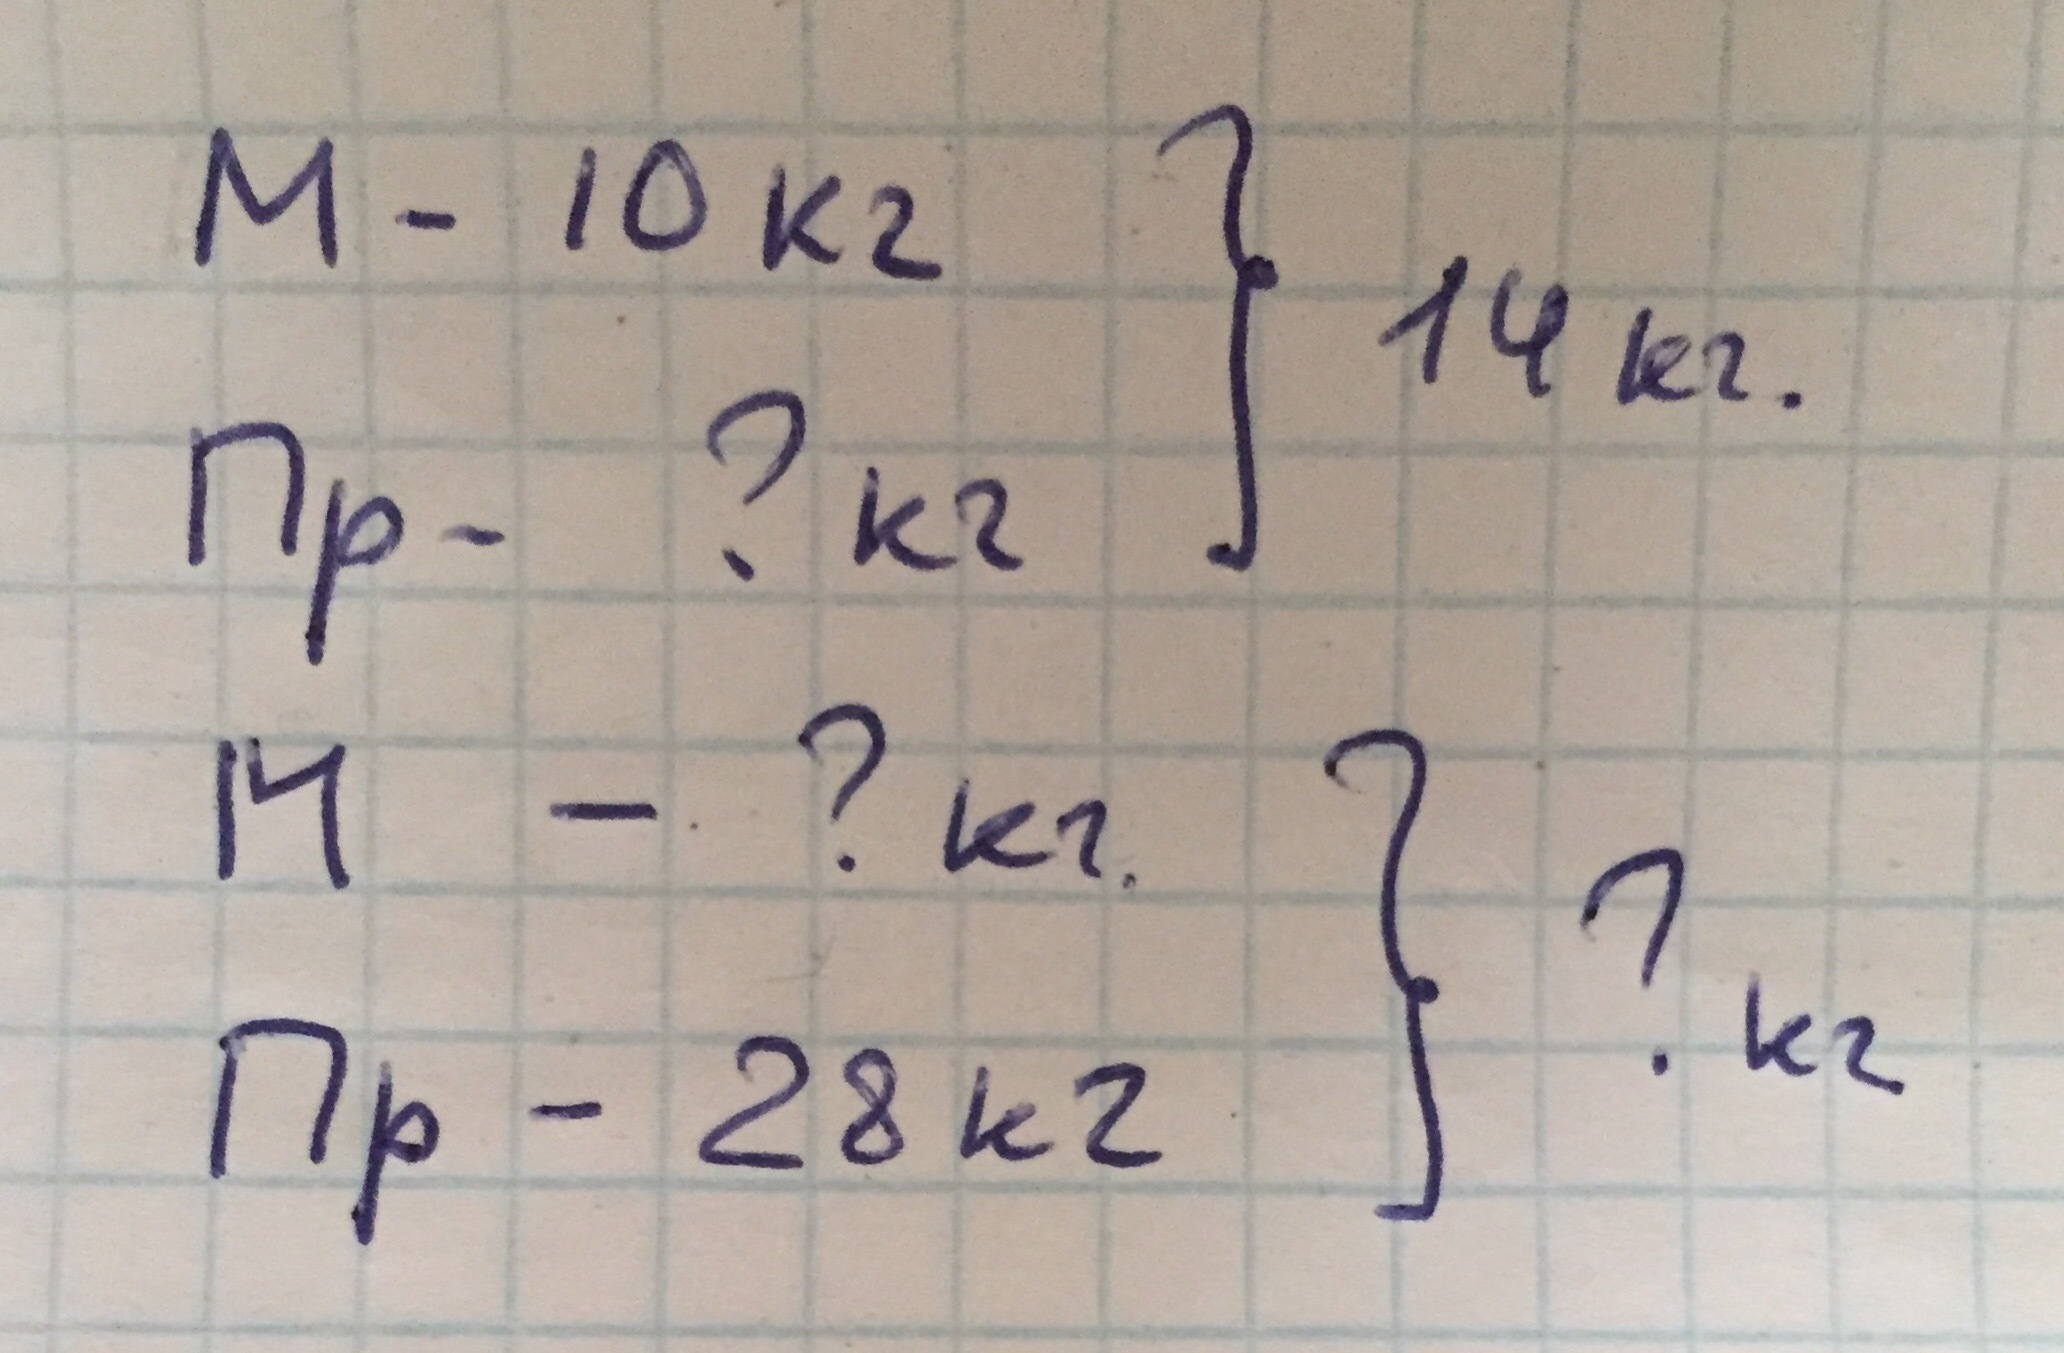 М - 10 кг
14 кг.
Пр - ? кг
М - ? кг.
? кг
Пр - 28 кг